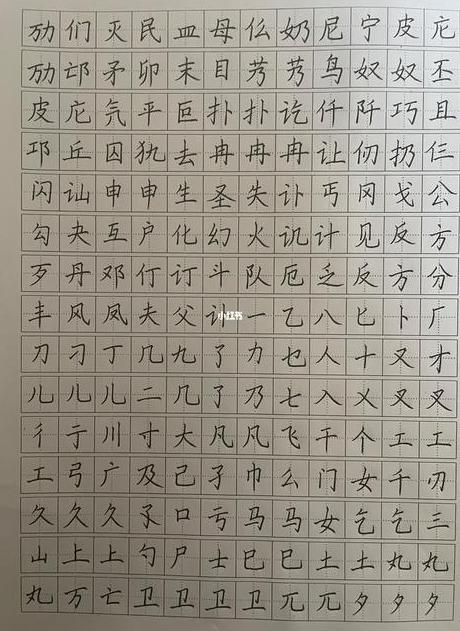 劢们灭民皿母仫奶尼宁皮庀
劢邙矛卯末目艿艿鸟奴奴丕
皮庀氕平叵扑扑讫仟阡巧且
邛丘囚犰去冉冉冉让仞扔仨
闪讪申申生圣失讣丐冈戈公
勾夬互户化幻火讥计见反方
歹丹邓仃订斗队厄乏反方分
丰风凤夫父讣一乙八匕卜厂
小红书
刀刁丁几九了力乜人十又才
儿儿儿二几了乃七入乂叉叉
彳亍川寸大凡凡飞干个工工
工弓广及己孑巾幺门女千刃
久久久孓口亏马马女乞乞三
山上上勺尸士巳巳土土丸丸
丸万亡卫卫卫卫兀兀夕夕夕